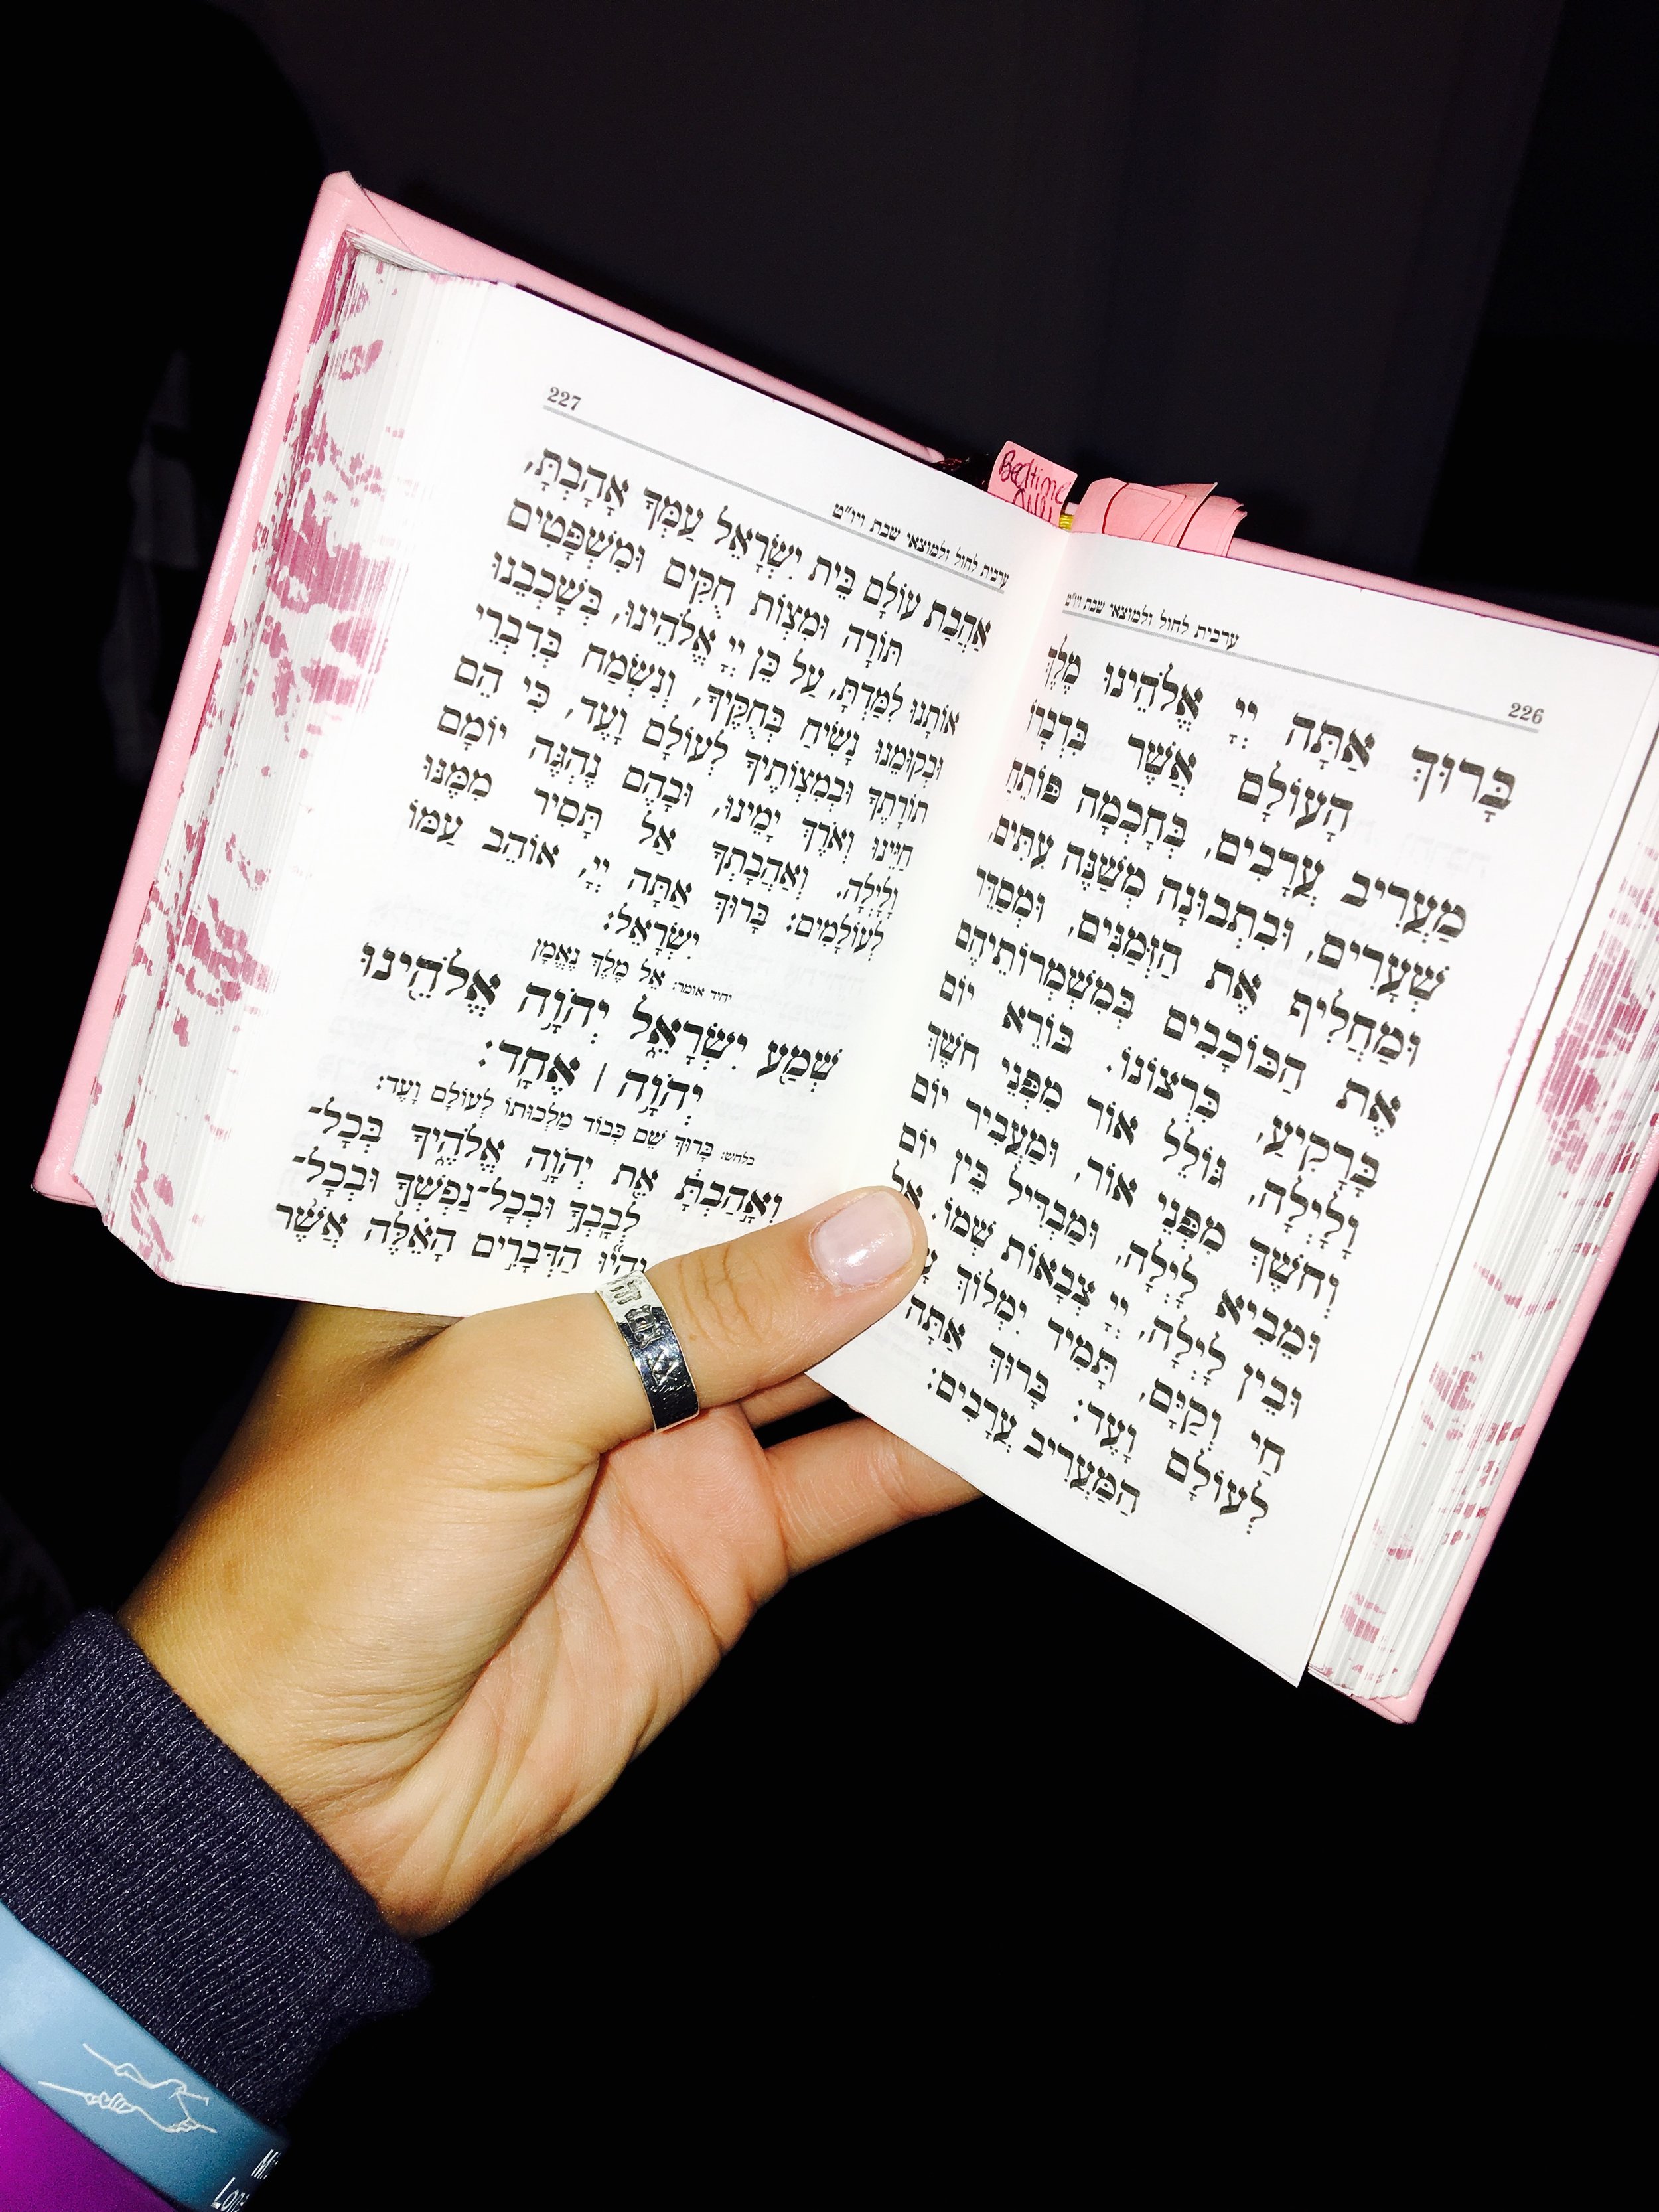 226
ערבית לחול ולמוצאי שבת ויו"ט
בָּרוּךְ אַתָּה יְיָ אֱלֹהֵינוּ מֶלֶךְ
הָעוֹלָם אֲשֶׁר בִּדְבָרוֹ
מַעֲרִיב עֲרָבִים, בְּחָכְמָה פּוֹתֵחַ
שְׁעָרִים, וּבִתְבוּנָה מְשַׁנֶּה עִתִּים,
וּמַחֲלִיף אֶת הַזְּמַנִּים, וּמְסַדֵּר
אֶת הַכּוֹכָבִים בְּמִשְׁמְרוֹתֵיהֶם
בָּרָקִיעַ, כִּרְצוֹנוֹ. בּוֹרֵא יוֹם
וָלָיְלָה, גּוֹלֵל אוֹר מִפְּנֵי חֹשֶׁךְ
וְחֹשֶׁךְ מִפְּנֵי אוֹר, וּמַעֲבִיר יוֹם
וּמֵבִיא לָיְלָה, וּמַבְדִּיל בֵּין יוֹם
וּבֵין לָיְלָה, יְיָ צְבָאוֹת שְׁמוֹ. אֵל
חַי וְקַיָּם, תָּמִיד יִמְלוֹךְ
לְעוֹלָם וָעֶד: בָּרוּךְ אַתָּה
הַמַּעֲרִיב עֲרָבִים:
227
ערבית לחול ולמוצאי שבת ויו"ט
אַהֲבַת עוֹלָם בֵּית יִשְׂרָאֵל עַמְּךָ אָהָבְתָּ,
תּוֹרָה וּמִצְוֹת חֻקִּים וּמִשְׁפָּטִים
אוֹתָנוּ לִמַּדְתָּ, עַל כֵּן יְיָ אֱלֹהֵינוּ, בְּשָׁכְבֵנוּ
וּבְקוּמֵנוּ נָשִׂיחַ בְּחֻקֶּיךָ, וְנִשְׂמַח בְּדִבְרֵי
תוֹרָתֶךָ וּבְמִצְוֹתֶיךָ לְעוֹלָם וָעֶד, כִּי הֵם
חַיֵּינוּ וְאֹרֶךְ יָמֵינוּ, וּבָהֶם נֶהְגֶּה יוֹמָם
וָלָיְלָה. וְאַהֲבָתְךָ אַל תָּסִיר מִמֶּנּוּ
לְעוֹלָמִים: בָּרוּךְ אַתָּה יְיָ, אוֹהֵב עַמּוֹ
יִשְׂרָאֵל:
יחיד אומר: אֵל מֶלֶךְ נֶאֱמָן
שְׁמַע יִשְׂרָאֵל יְהֹוָה אֱלֹהֵינוּ
יְהֹוָה | אֶחָד:
בלחש: בָּרוּךְ שֵׁם כְּבוֹד מַלְכוּתוֹ לְעוֹלָם וָעֶד:
וְאָהַבְתָּ אֵת יְהֹוָה אֱלֹהֶיךָ בְּכָל־
לְבָבְךָ וּבְכָל־נַפְשְׁךָ וּבְכָל־
וְהָיוּ הַדְּבָרִים הָאֵלֶּה אֲשֶׁר
Bedtime